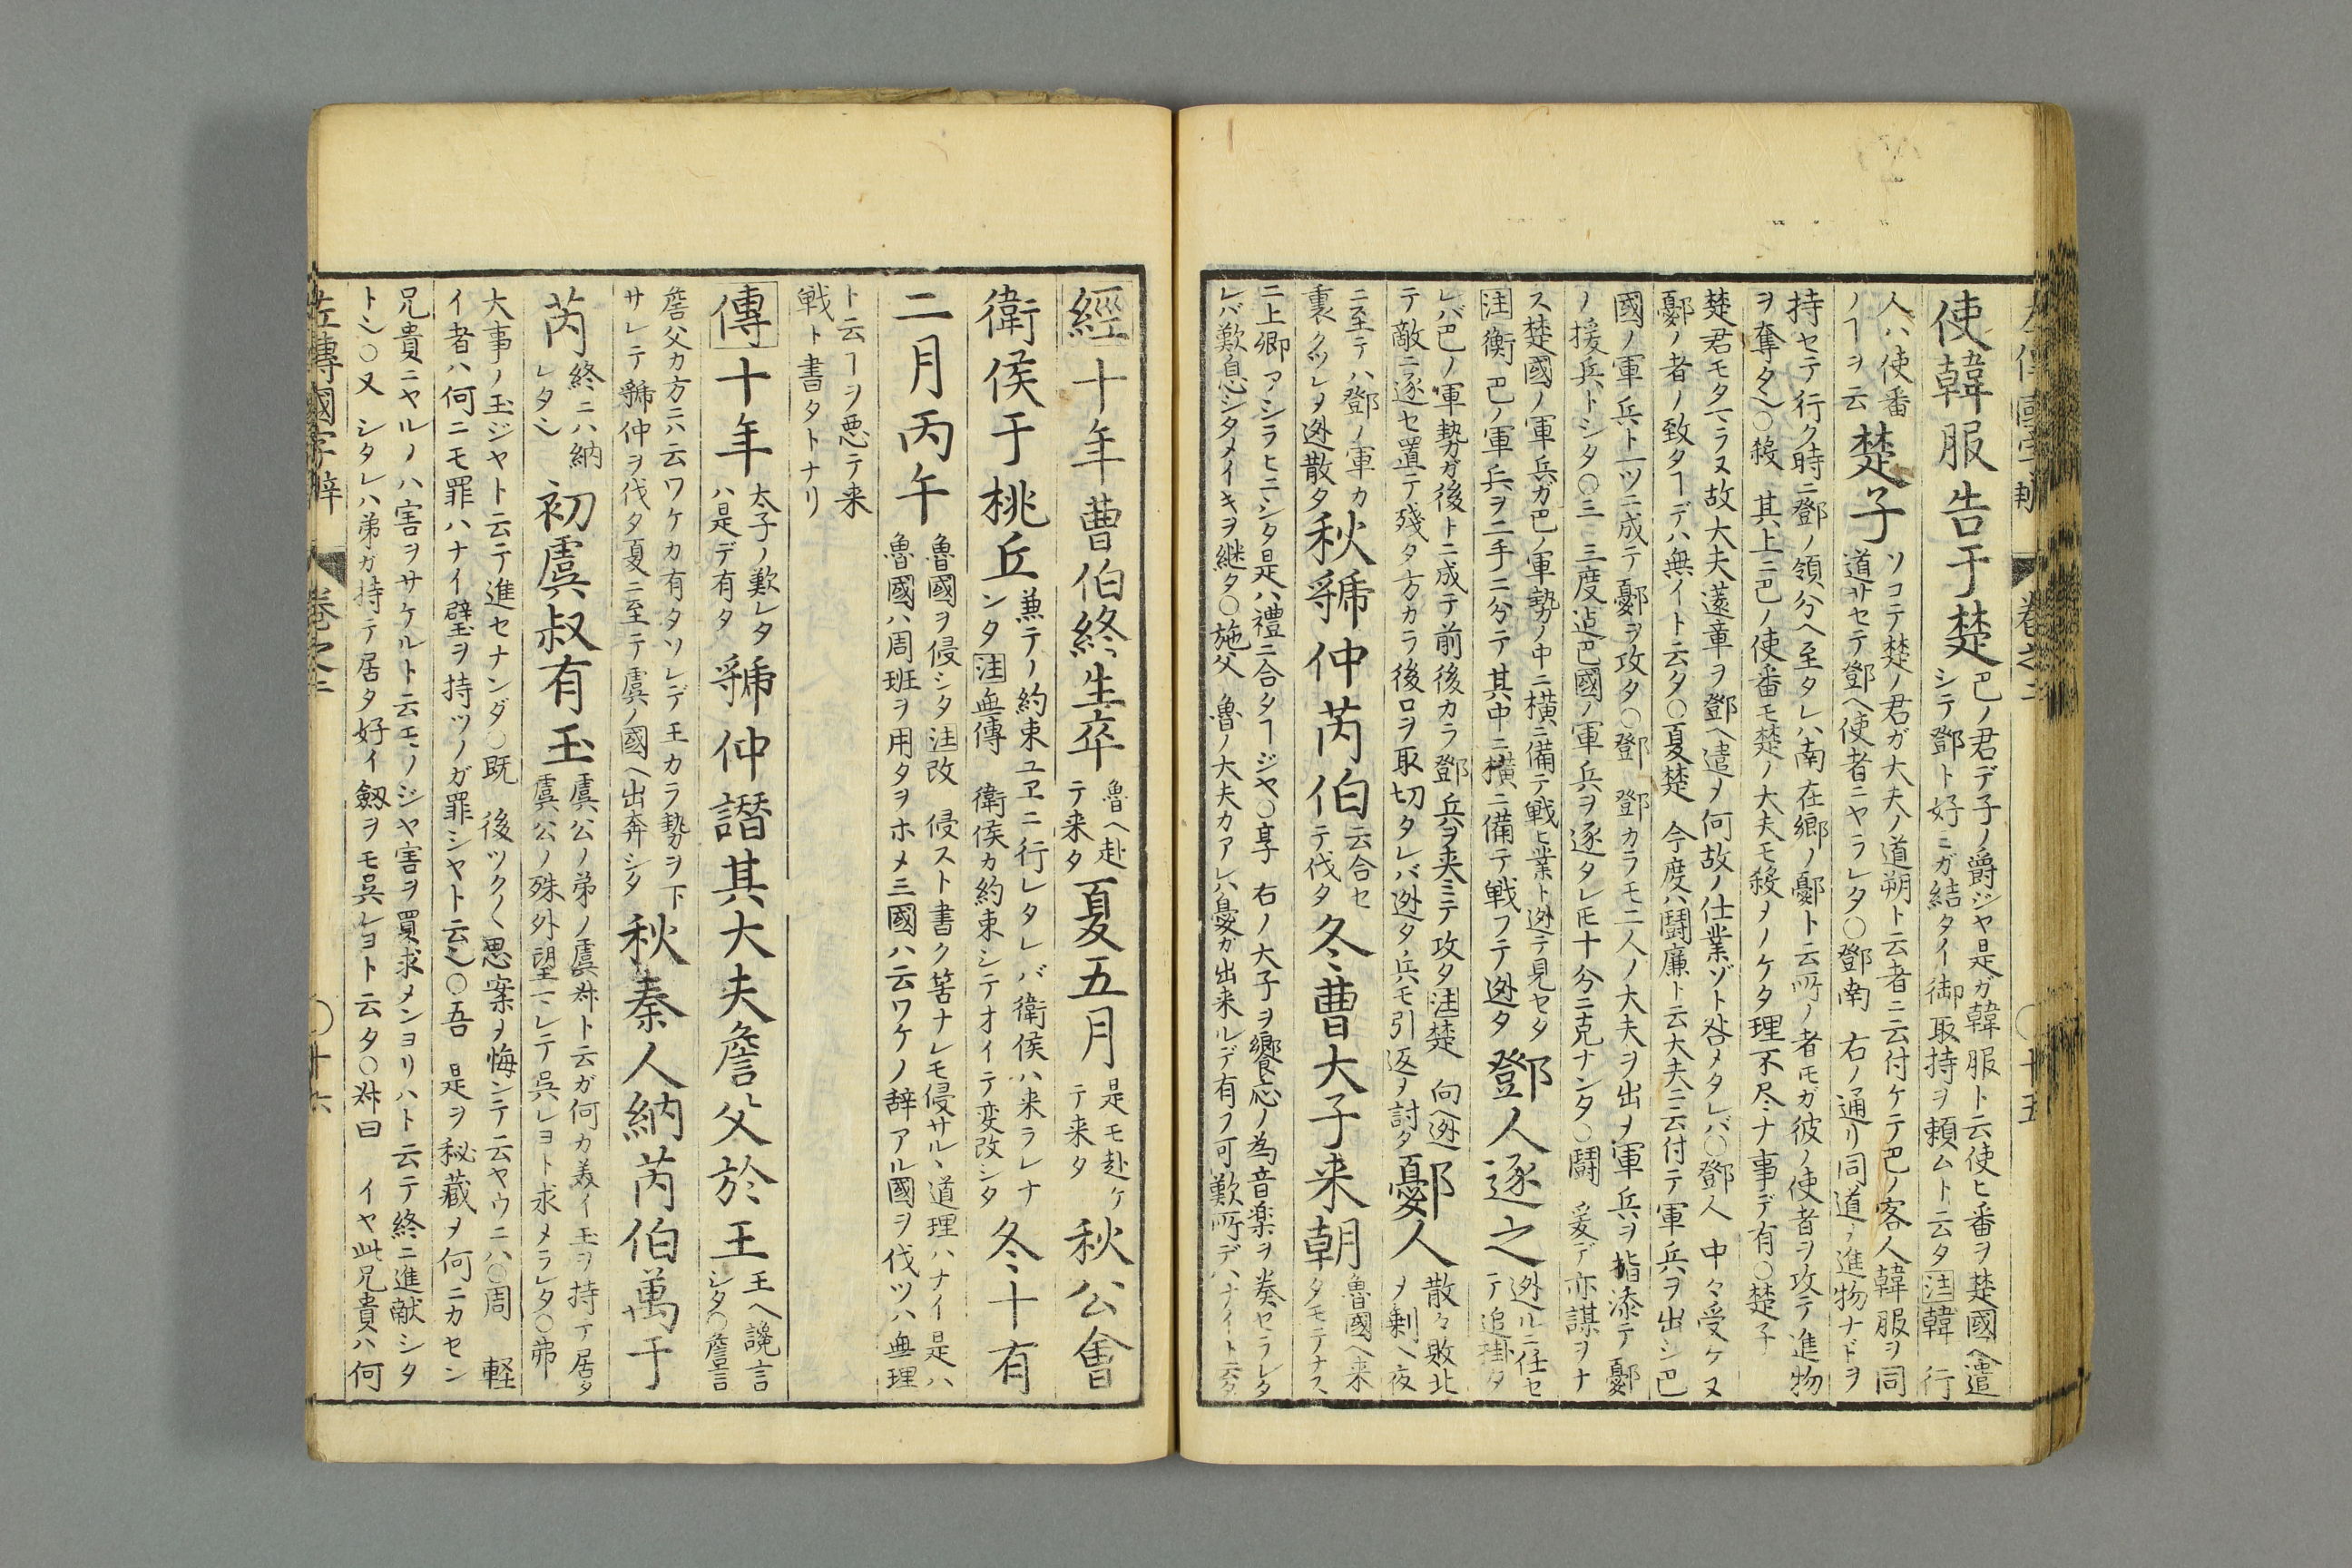 使韓服告于楚 巴ノ君デ子ノ爵ジヤ是ガ韓服ト云使ヒ番ヲ楚國ヘ遣
シテ鄧ト好ミガ結タイ御取持ヲ頼ムト云タ 注 韓 行
人ハ使番
ノヿヲ云 楚子 ソコテ楚ノ君ガ大夫ノ道朔ト云者ニ云付ケテ巴ノ客人韓服ヲ同
道サセテ鄧ヘ使者ニヤラレタ○鄧南 右ノ通リ同道ノ進物ナドヲ
持セテ行ク時ニ鄧ノ領分ヘ至タレハ南在郷ノ鄾ト云所ノ者モガ彼ノ使者ヲ攻テ進物
ヲ奪タ○殺 其上ニ巴ノ使番モ楚ノ大夫モ殺メノケタ理不尽ナ事デ有○楚子
楚君モタマラヌ故大夫薳章ヲ鄧ヘ遣ヲ何故ノ仕業ゾト咎メタレバ○鄧人 中々受ケヌ
鄾ノ者ノ致タヿデハ無イト云タ○夏楚 今度ハ鬪廉ト云大夫ニ云付テ軍兵ヲ出シ巴
國ノ軍兵ト一ツニ成テ鄾ヲ攻タ○鄧 鄧カラモ二人ノ大夫ヲ出ノ軍兵ヲ指添テ鄾
ノ援兵トシタ○三 三度迠巴國ノ軍兵ヲ逐タレモ十分ニ克ナンタ○鬪 爰デ亦謀ヲナ
ス楚國ノ軍兵ガ巴ノ軍勢ノ中ニ横ニ備テ戦ヒ業ト迯テ見セタ
注 衡 巴ノ軍兵ヲ二手ニ分テ其中ニ横ニ備テ戦フテ迯タ 鄧人逐之 迯ルニ任セ
テ追掛タ
レバ巴ノ軍勢ガ後トニ成テ前後カラ鄧兵ヲ夹ミテ攻タ 注 楚 向ヘ迯
テ敵ニ逐セ置テ殘タ方カラ後ロヲ取切タレバ迯タ兵モ引返ヲ討タ 鄾人 散々敗北
ヲ剰ヘ夜
ニ至テハ鄧ノ軍カ
裏クツレヲ迯散タ 秋虢仲芮伯 云合セ
テ伐タ 冬曹大子来朝 魯國ヘ来
タモテナス
ニ上卿アシラヒニシタ是ハ禮ニ合タヿジヤ○享 右ノ大子ヲ饗応ノ為音楽ヲ奏セラレタ
レバ歎息シタメイキヲ継タ○施父 魯ノ大夫カアレハ憂ガ出来ルデ有フ可歎所デハナイト云タ
經 十年曹伯終生卒 魯ヘ赴
テ来タ 夏五月 是モ赴ケ
テ来タ 秋公會
衛侯于桃丘 兼テノ約束ユヱニ行レタレバ衛侯ハ来ラレナ
ンタ 注 無傳 衛侯カ約束シテオイテ変改シタ 冬十有
二月丙午 魯國ヲ侵シタ 注 改 侵スト書ク筈ナレモ侵サルヽ道理ハナイ是ハ
魯國ハ周班ヲ用タヲホメ三國ハ云ワケノ辞アル國ヲ伐ツハ無理
ト云ヿヲ悪テ来
戦ト書タトナリ
傳 十年 太子ノ歎レタ
ハ是デ有タ 虢仲譖其大夫詹父於王 王ヘ讒言
シタ○詹言
詹父カ方ニハ云ワケカ有タソレデ王カラ勢ヲ下
サレテ虢仲ヲ伐タ夏ニ至テ虞ノ國ヘ出奔シタ 秋秦人納芮伯萬于
芮 終ニハ納
レタ 初虞叔有玉 虞公ノ弟ノ虞叔ト云ガ何カ美イ玉ヲ持テ居タ
虞公ノ殊外望マレテ呉レヨト求メラレタ○弗
大事ノ玉ジヤト云テ進セナンダ○既 後ツク〱思案ヲ悔ンテ云ヤウニハ○周 軽
イ者ハ何ニモ罪ハナイ璧ヲ持ツノガ罪シヤト云○吾 是ヲ秘蔵ヲ何ニカセン
兄貴ニヤルノハ害ヲサケルト云モノジヤ害ヲ買求メンヨリハト云テ終ニ進献シタ
ト○又 シタレハ弟ガ持テ居タ好イ劔ヲモ呉レヨト云タ○叔曰 イヤ此兄貴ハ何
左傳國字辨 卷之二 ○十六